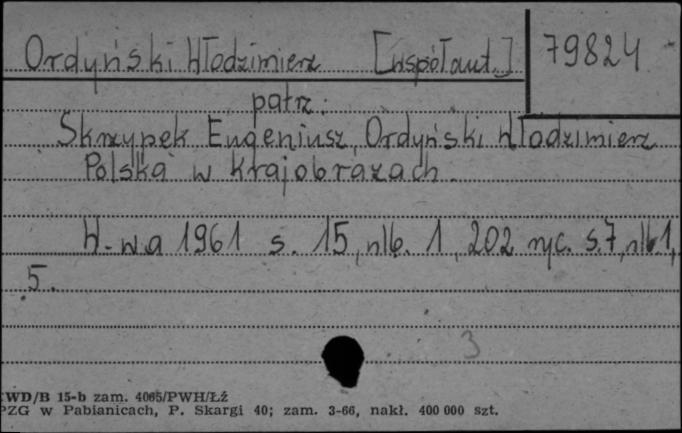 Ordyński Włodzimierz [współaut.]
79824
patrz:
Skrzypek Eugeniusz, Ordyński Włodzimierz
Polska w krajobrazach.
W-wa 1961 s. 15, nlb. 1, 202 ryc. s. 7, nlb 1,
5.
3
WD/B 15-b zam. 4065/PWH/Łź
PZG w Pabianicach, P. Skargi 40; zam. 3-66, nakł. 400 000 szt.